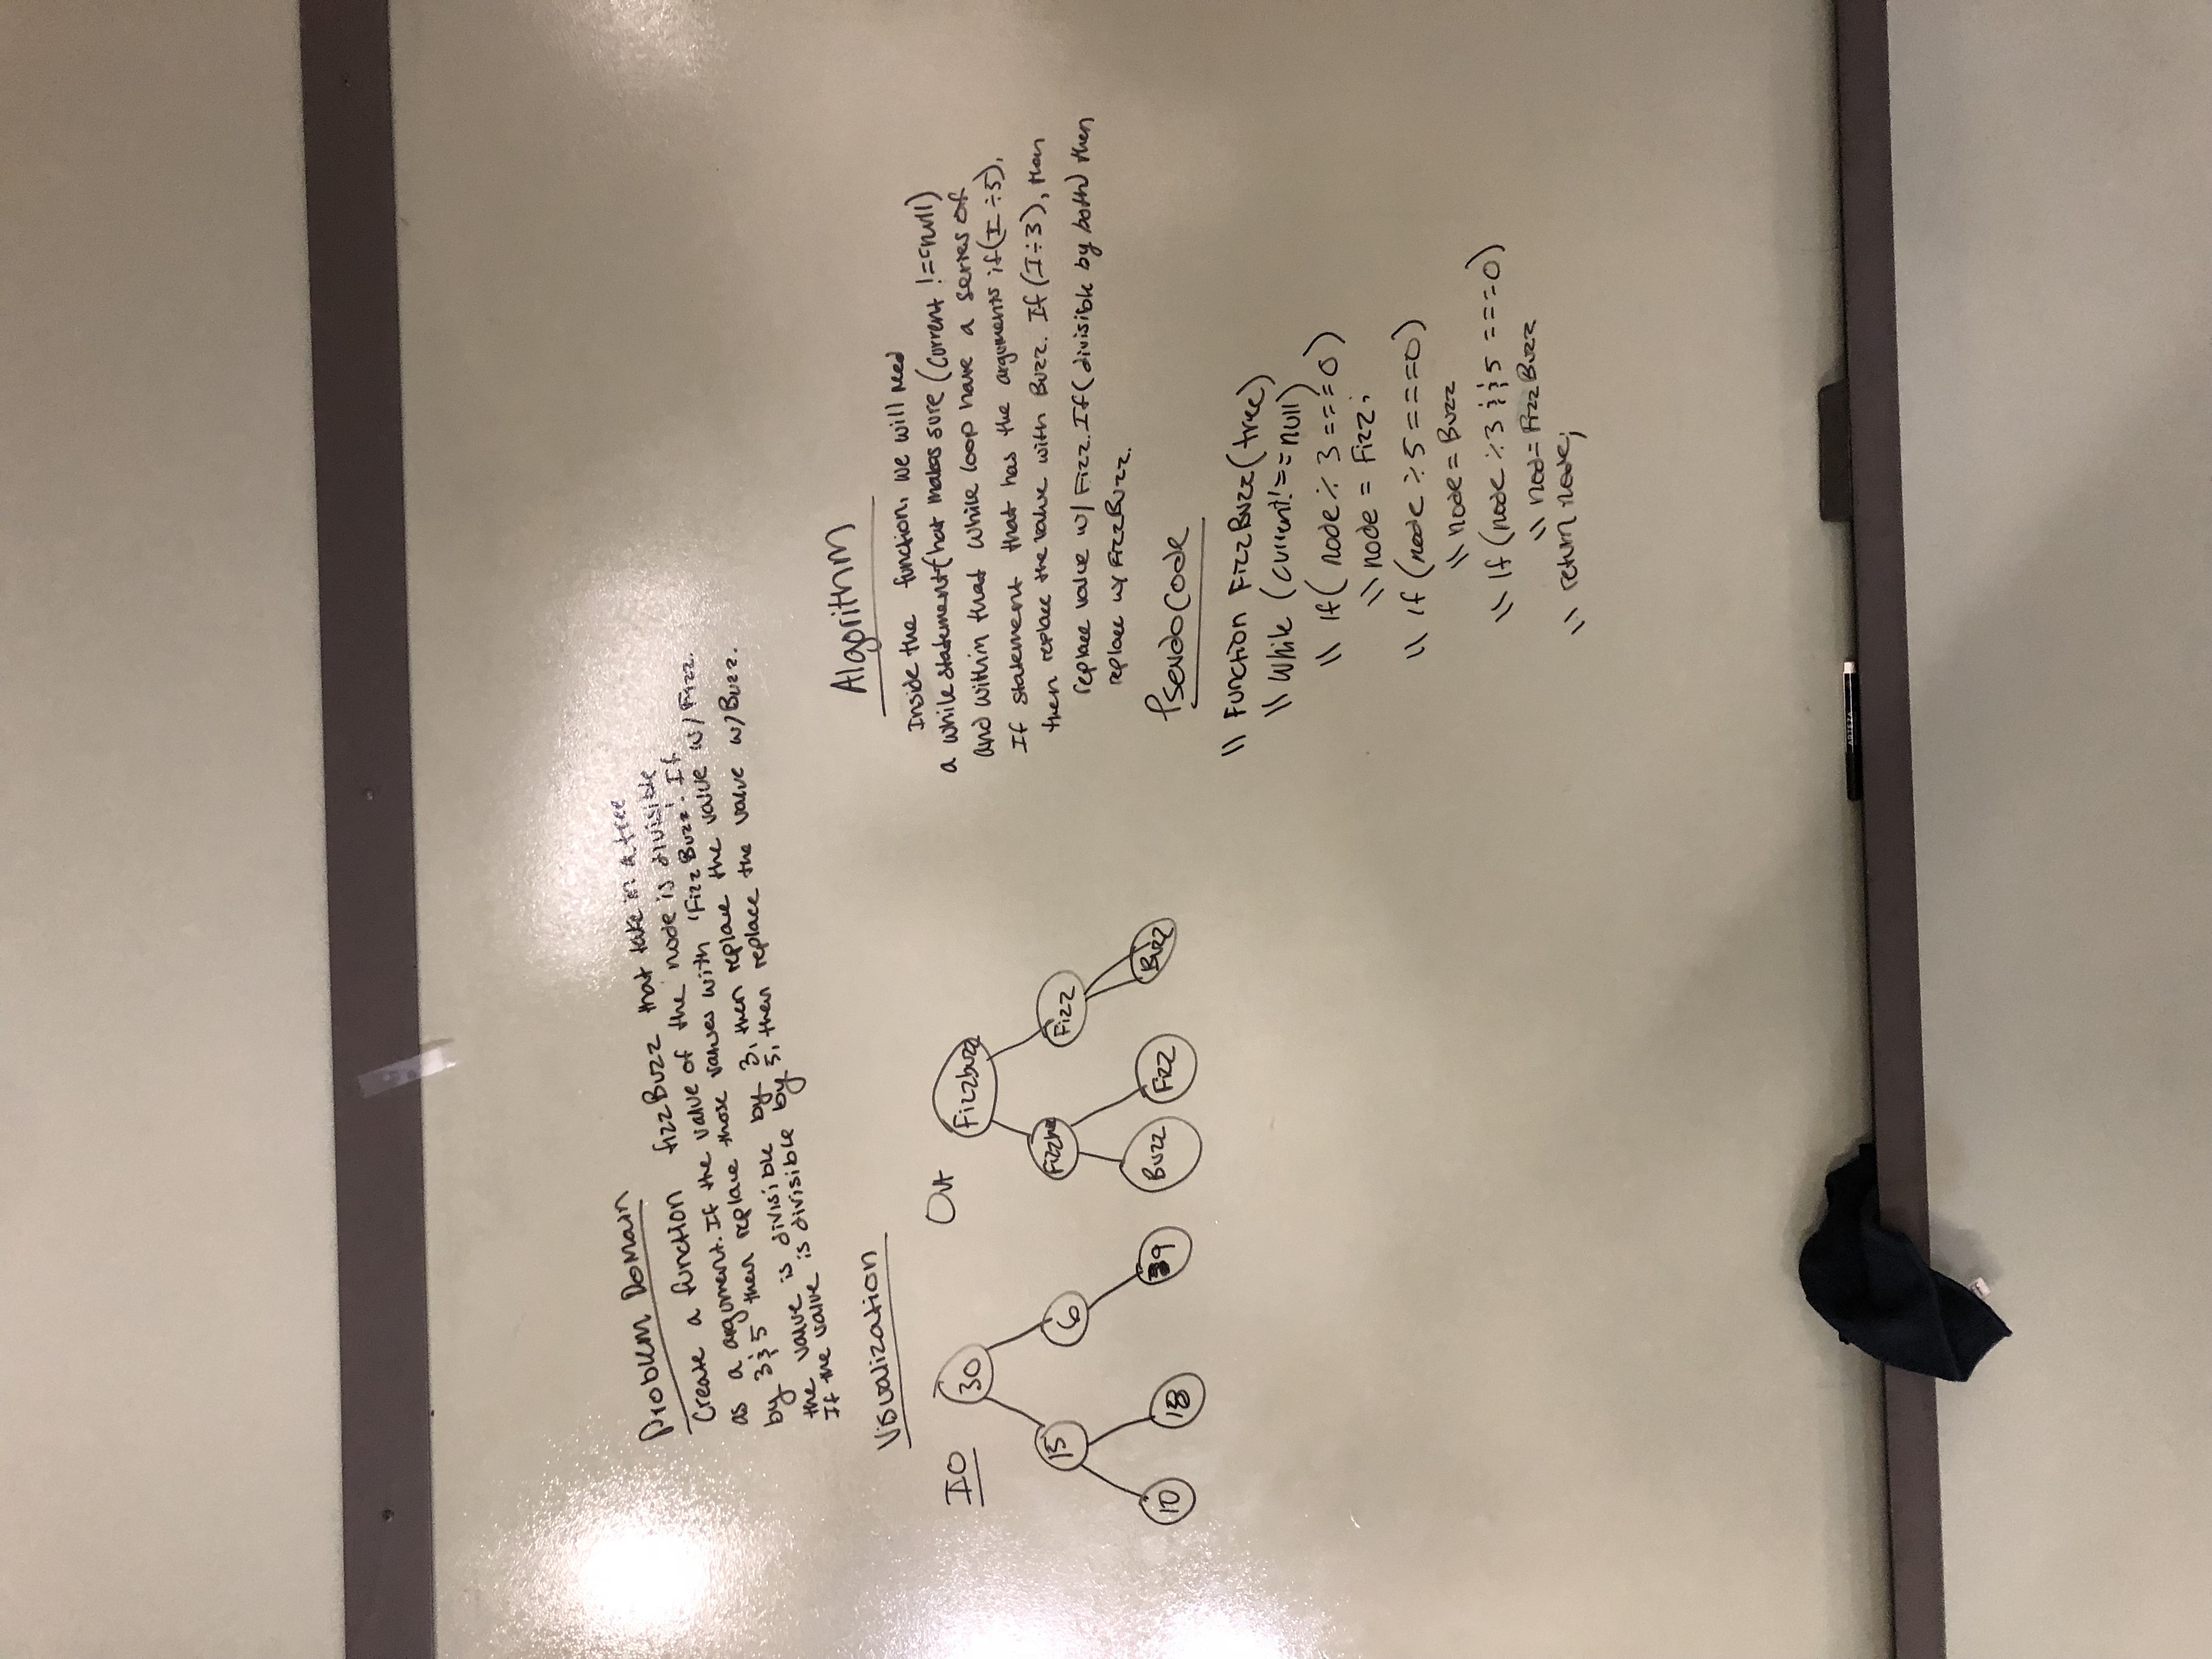 Problem Domain
Create a function fizzBuzz that take in a tree
as a argument. If the value of the node is divisible
by 3 & 5 then replace those values with 'FizzBuzz'. If
the value is divisible by 3, then replace the value w/ Fizz.
If the value is divisible by 5, then replace the value w/ Buzz.
Visualization
IO
30
15
6
10
18
39
Out
Fizzbuzz
Fizz
Buzz
Fizz
Buzz
Algorithm
Inside the function, we will need
a while statement that makes sure (current !== null)
and within that while loop have a series of
If statement that has the arguments if (I ÷ 5),
then replace the value with Buzz. If (I ÷ 3), then
replace value w/ Fizz. If (divisible by both) then
replace w/ FizzBuzz.
PseudoCode
\\ Function FizzBuzz(tree)
\\ While (current !== null)
\\ If ( node % 3 === 0 )
\\ node = Fizz;
\\ If (node % 5 === 0)
\\ node = Buzz
\\ If (node % 3 && 5 === 0)
\\ nod = FizzBuzz
\\ return node;
ARTEZA